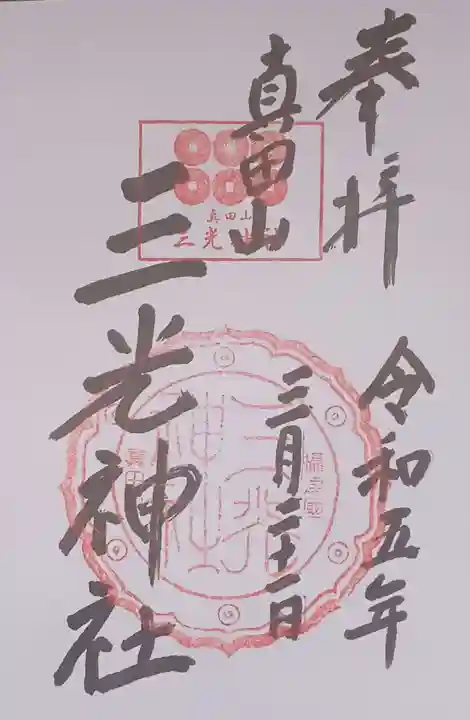 奉拝
令和五年
真田山
三月二十一日
三光神社
真田山
三光神社
三光神社